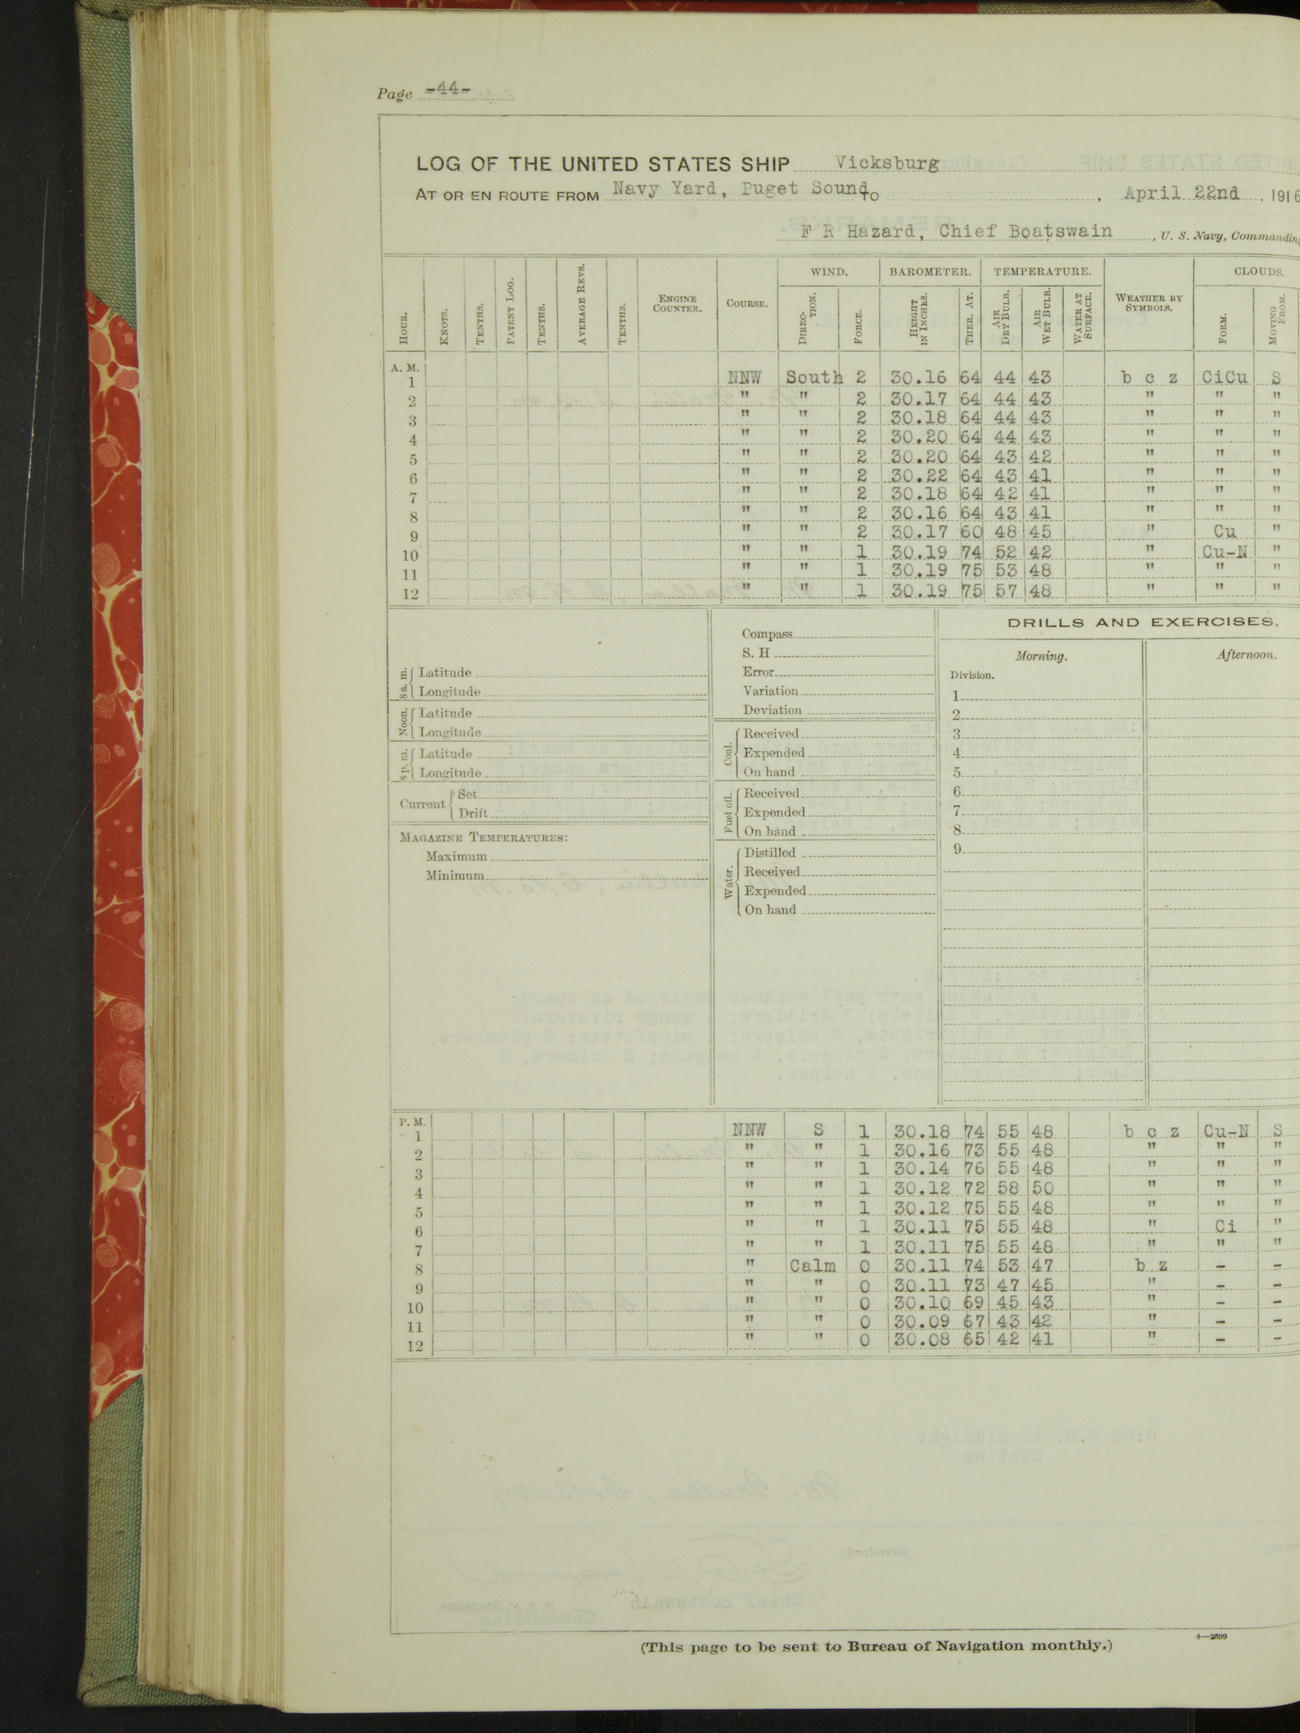 Page -44-
LOG OF THE UNITED STATES SHIP Vicksburg
AT OR EN ROUTE FROM Navy Yard, Puget Sound TO , April 22nd , 1916
F R Hazard, Chief Boatswain , U. S. Navy, Commanding
HOUR. KNOTS. TENTHS. PATENT LOG. TENTHS. AVERAGE REVS. TENTHS. ENGINE COUNTER. COURSE. WIND. DIRECTION. FORCE. BAROMETER. HEIGHT IN INCHES. THER. AT. TEMPERATURE. AIR DRY BULB. AIR WET BULB. WATER AT SURFACE. WEATHER BY SYMBOLS. CLOUDS. FORM. MOVING FROM.
A. M.
1 NNW South 2 30.16 64 44 43 b c z CiCu S
2 " " 2 30.17 64 44 43 " " "
3 " " 2 30.18 64 44 43 " " "
4 " " 2 30.20 64 44 43 " " "
5 " " 2 30.20 64 43 42 " " "
6 " " 2 30.22 64 43 41 " " "
7 " " 2 30.18 64 42 41 " " "
8 " " 2 30.16 64 43 41 " " "
9 " " 2 30.17 60 48 45 " Cu "
10 " " 1 30.19 74 52 42 " Cu-N "
11 " " 1 30.19 75 53 48 " " "
12 " " 1 30.19 75 57 48 " " "
8 a. m. Latitude
Longitude
Noon. Latitude
Longitude
8 p. m. Latitude
Longitude
Current Set
Drift
MAGAZINE TEMPERATURES:
Maximum
Minimum
Compass
S. H
Error
Variation
Deviation
Coal. Received
Expended
On hand
Fuel oil. Received
Expended
On hand
Water. Distilled
Received
Expended
On hand
DRILLS AND EXERCISES.
Morning. Afternoon.
Division.
1
2
3
4
5
6
7
8
9
P. M.
1 NNW S 1 30.18 74 55 48 b c z Cu-N S
2 " " 1 30.16 73 55 48 " " "
3 " " 1 30.14 76 55 48 " " "
4 " " 1 30.12 72 58 50 " " "
5 " " 1 30.12 75 55 48 " " "
6 " " 1 30.11 75 55 48 " Ci "
7 " " 1 30.11 75 55 48 " " "
8 " Calm 0 30.11 74 53 47 b z - -
9 " " 0 30.11 73 47 45 " - -
10 " " 0 30.10 69 45 43 " - -
11 " " 0 30.09 67 43 42 " - -
12 " " 0 30.08 65 42 41 " - -
(This page to be sent to Bureau of Navigation monthly.)
4—2599